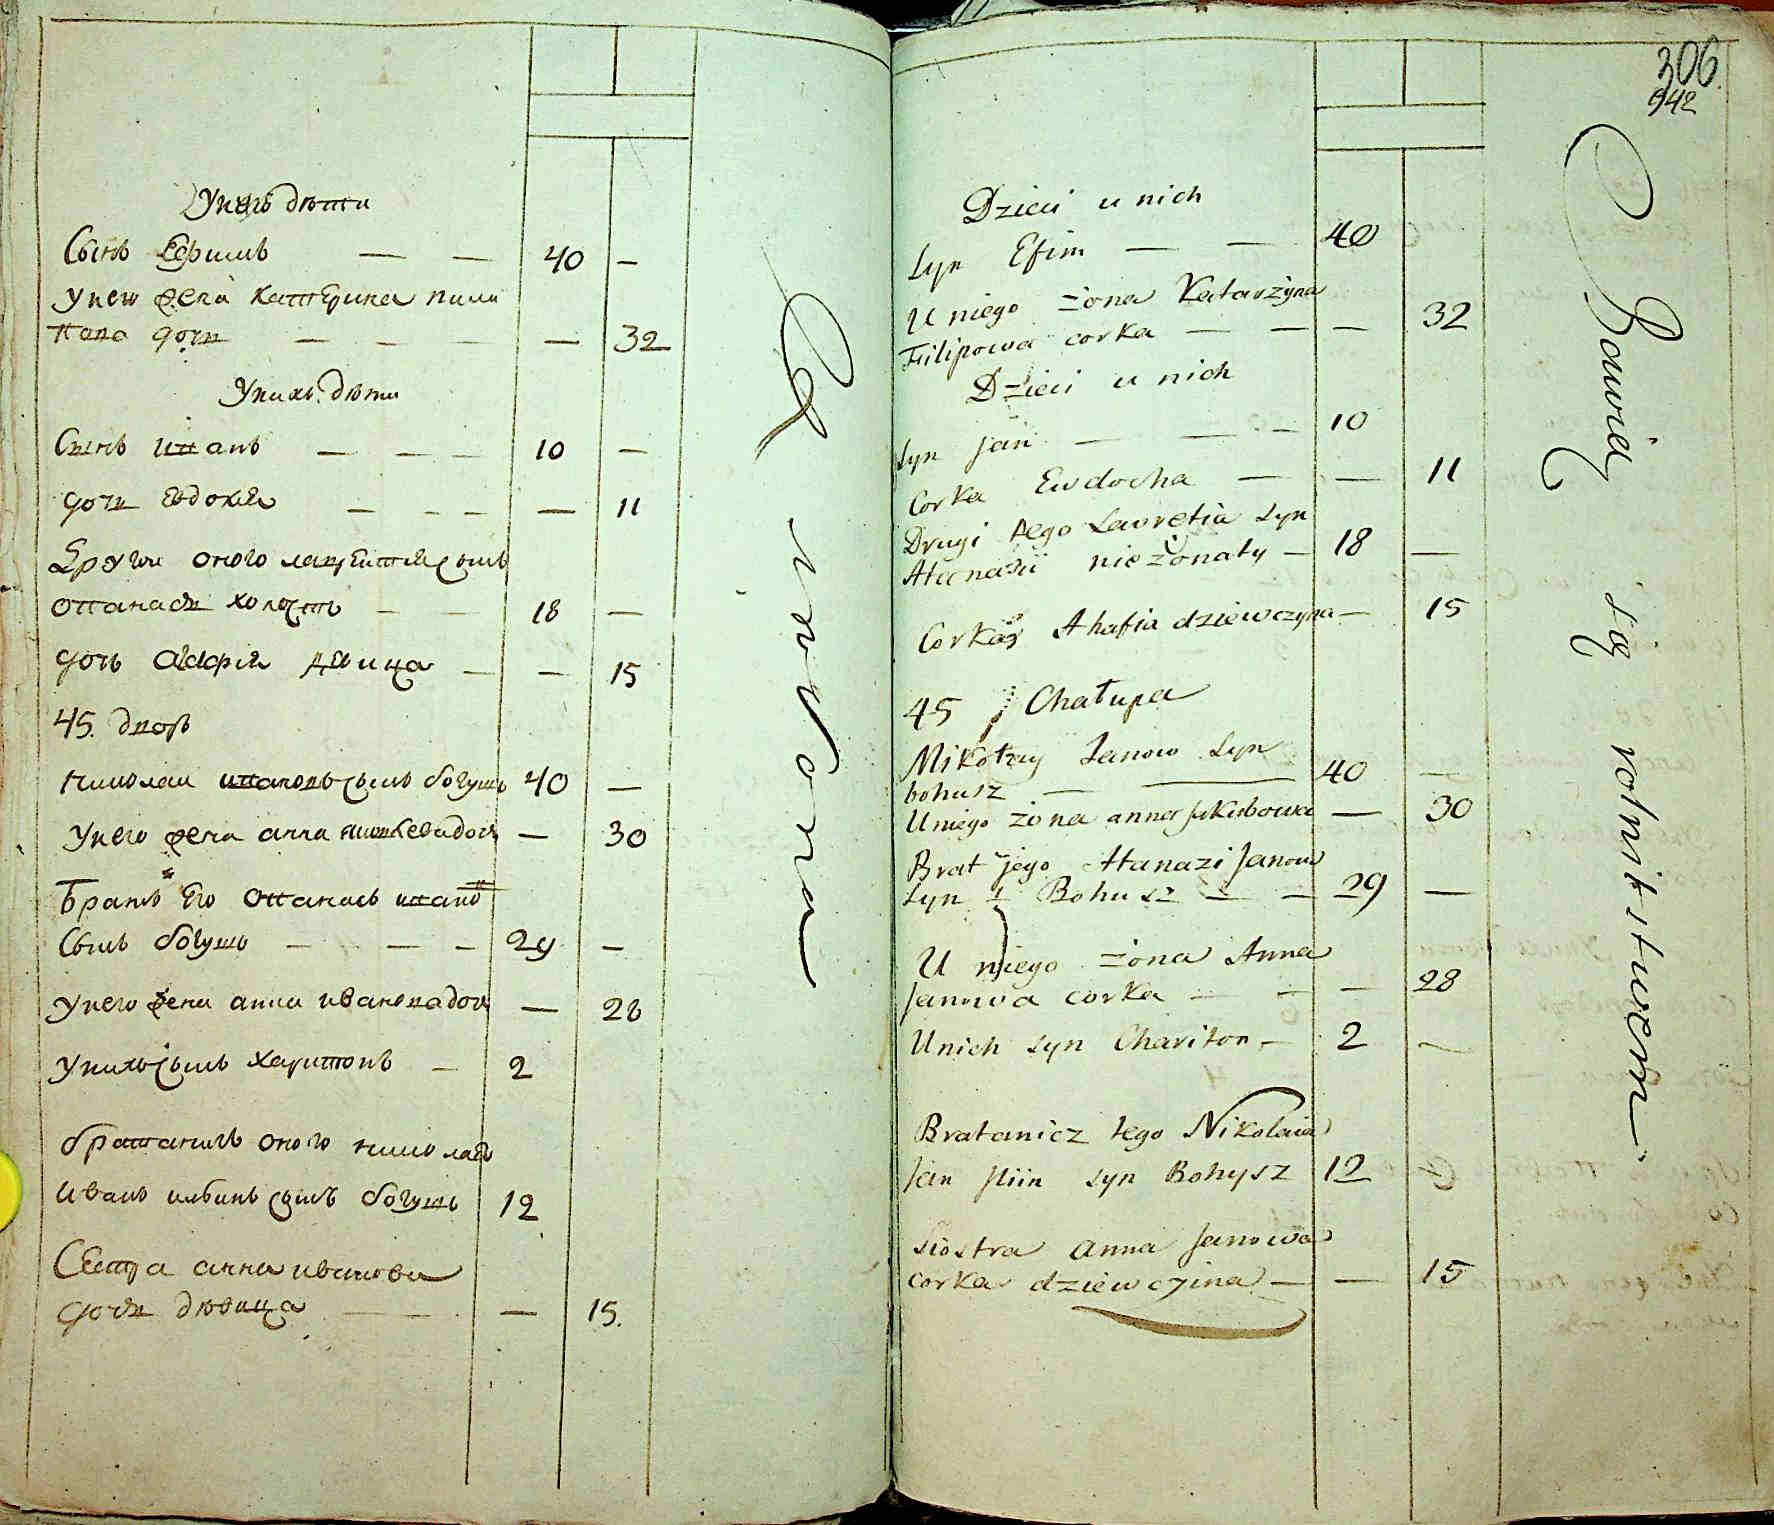 У нихъ дѣти
Сынъ Ефимъ — — 40 —
у него жена катерина пили
пова дочь — — — — 32
У нихъ дѣти
Сынъ иванъ — — — 10 —
дочь евдокия — — — — 11
Другои оного лаврентия сынъ
Отанаси холостъ — — 18 —
дочь агафия двица — — 15
45. дворъ
николаи ивановъ сынъ богушъ 40 —
у него жена анна — 30
Братъ его Отанасъ ивановъ
сынъ богушъ — — — 29 —
у него жена анна иванова дочь — 28
у нихъ сынъ харитонъ — 2
братаничъ оного николая
иванъ сынъ богушъ 12
Сестра анна иванова
дочь дѣвица — — — 15.
306
942
Dzieci u nich
Syn Efim — — 40
U niego żona Katarżyna
Filipowa corka — — — 32
Dzieci u nich
Syn Jan — — — 10
Corka Ewdocha — — 11
Drugi tego Lavretia Syn
Atanasii nieżonaty — 18 —
Corka Ahafia dziewczyna — 15
45 Chałupa
Mikołay Janow Syn
bohusz — — 40 —
U niego żona anna Jakubowa — 30
Brat jego Atanazi Janow
Syn Bohusz — — 29 —
U niego żona Anna
Janowa corka — — — 28
U nich syn Chariton — 2 —
Bratanicz tego Nikolaia
Jan syn Bohysz 12
Siostra anna Janowa
corka dziewczina — — 15
Bawią się rolnistwem